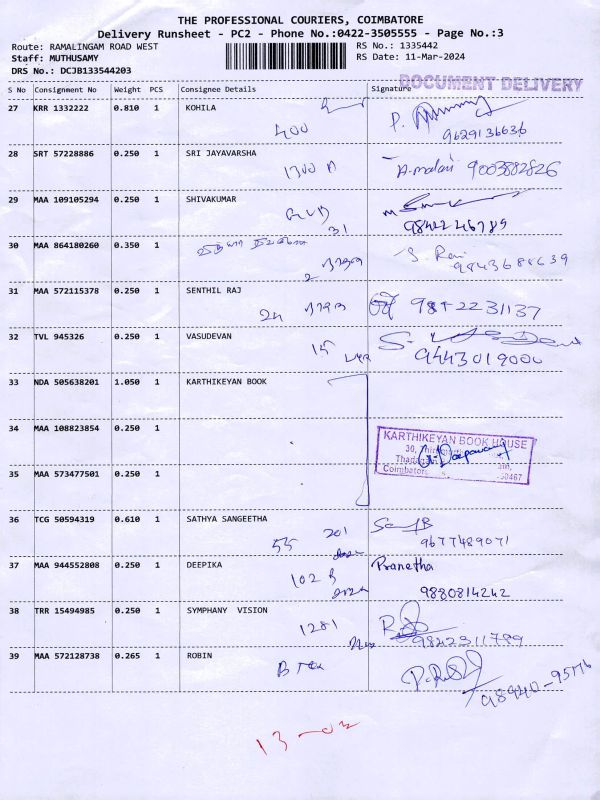 THE PROFESSIONAL COURIERS, COIMBATORE
Delivery Runsheet - PC2 - Phone No.:0422-3505555 - Page No.:3
Route: RAMALINGAM ROAD WEST
RS No.: 1335442
Staff: MUTHUSAMY
RS Date: 11-Mar-2024
DRS No.: DCJB133544203
DOCUMENT DELIVERY
S No Consignment No Weight PCS Consignee Details Signature
27 KRR 1332222 0.810 1 KOHILA
400
9629136636
28 SRT 57228886 0.250 1 SRI JAYAVARSHA
1700 A 9003882826
29 MAA 109105294 0.250 1 SHIVAKUMAR
31 9842246789
30 MAA 864180260 0.350 1
2 9843688639
31 MAA 572115378 0.250 1 SENTHIL RAJ
24 9842231137
32 TVL 945326 0.250 1 VASUDEVAN
15 9443019000
33 NDA 505638201 1.050 1 KARTHIKEYAN BOOK
34 MAA 108823854 0.250 1
KARTHIKEYAN BOOK HOUSE
30,
Coimbatore
35 MAA 573477501 0.250 1
36 TCG 50594319 0.610 1 SATHYA SANGEETHA
55 201 9677489071
37 MAA 944552808 0.250 1 DEEPIKA Pranetha
102 B 9880814242
38 TRR 15494985 0.250 1 SYMPHANY VISION
1281 9842311799
39 MAA 572128738 0.265 1 ROBIN
98940-95176
13-03